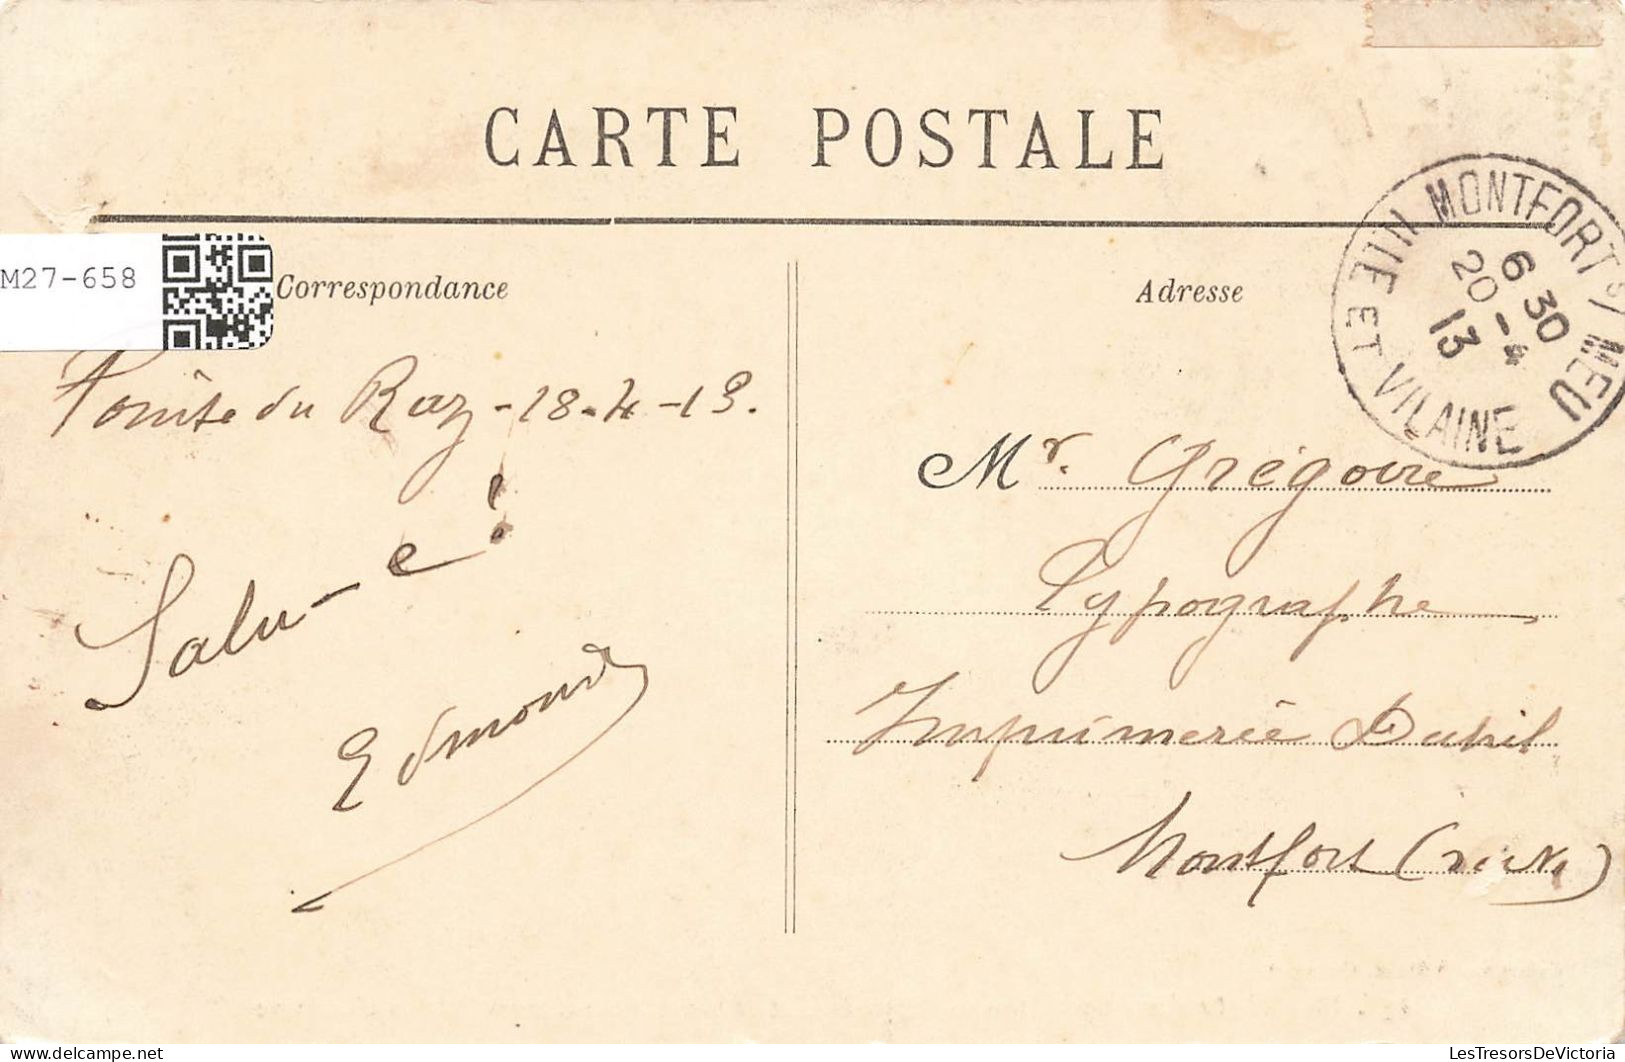 CARTE POSTALE
M27-658
Correspondance
Pointe du Raz - 18-4-13.
Salu-e!
Edmond
Adresse
MONTFORT S/ MEU
6 30
20 - 4
13
ILLE ET VILAINE
Mr. Grégoire
Typographe
Imprimerie
Montfort
LesTresorsDeVictoria